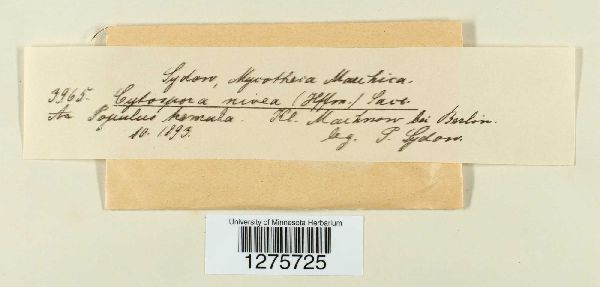 Sydow, Mycotheca Marchica.
3965. Cytospora nivea (Hffm.) Sacc.
An Populus tremula. Kl. Machnow bei Berlin.
10. 1893. leg. P. Sydow.
University of Minnesota Herbarium
1275725